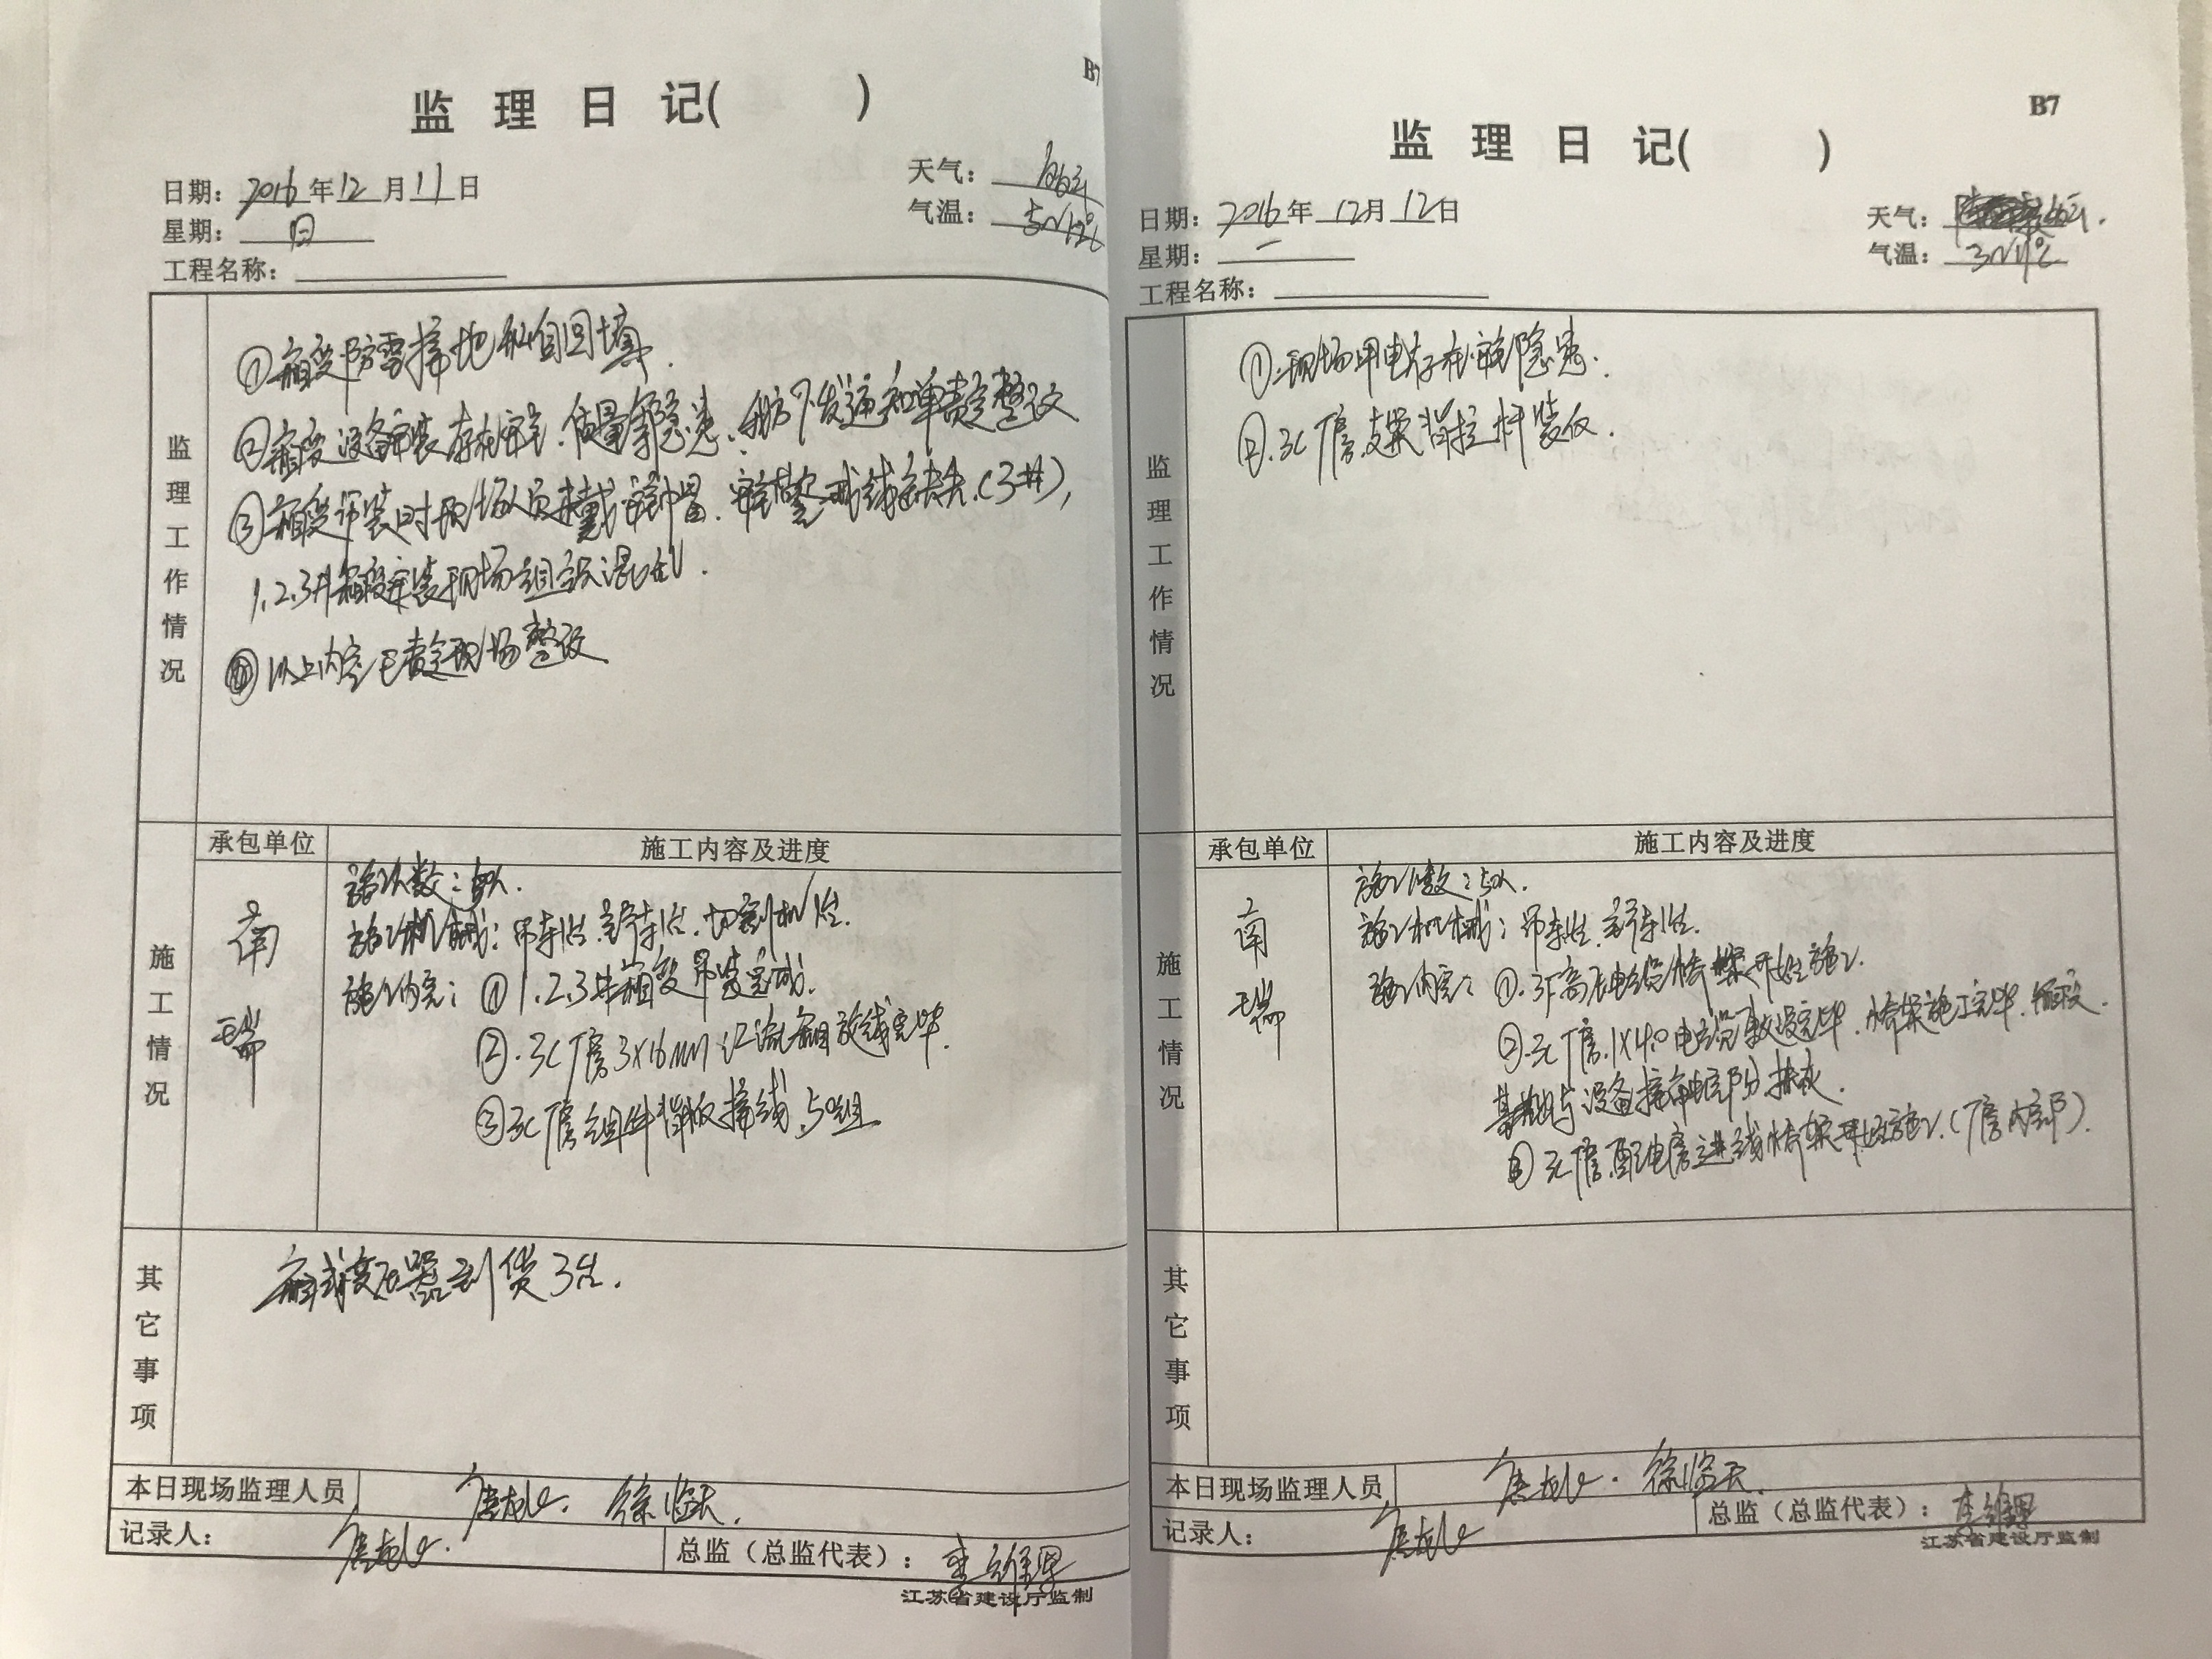 监理日记( )
B7
日期：2016年12月11日
天气：
星期：日
气温：5~12℃
工程名称：
监理工作情况
①箱变防雷接地 回填.
②箱变设备安装存在安全、质量等隐患、我方下发通知单责定整改
③箱变吊装时现场人员未戴安全帽、安全警戒线缺失.(3#),
1.2.3#箱变安装现场组织混乱.
④以上内容已责定现场整改
承包单位
施工内容及进度
施工情况
南瑞
施工人数：
施工机械：吊车1台、 车1台、切割机1台.
施工内容：①1.2.3#箱变吊装完成.
②.3C厂房3×16mm 汇流箱放线完毕.
③3C厂房组件背板接线,50组
其它事项
箱式变压器到货3台.
本日现场监理人员
记录人：
总监（总监代表）：
江苏省建设厅监制
B7
监理日记( )
日期：2016年12月12日
天气：
星期：一
气温：
工程名称：
监理工作情况
①.现场用电存在安全隐患.
②.3C厂房.支架背拉杆装反.
承包单位
施工内容及进度
施工情况
南瑞
施工人数：50人.
施工机械：吊车1台, 车1台.
施工内容：①.3F高压电缆桥架开始施工.
②.3C厂房.1×4.0电缆敷设完毕.桥架施工完毕.箱变.
基础与设备接 部分抹灰.
③3C厂房.配电房进线桥架开始施工.(厂房内部).
其它事项
本日现场监理人员
记录人：
总监（总监代表）：
江苏省建设厅监制